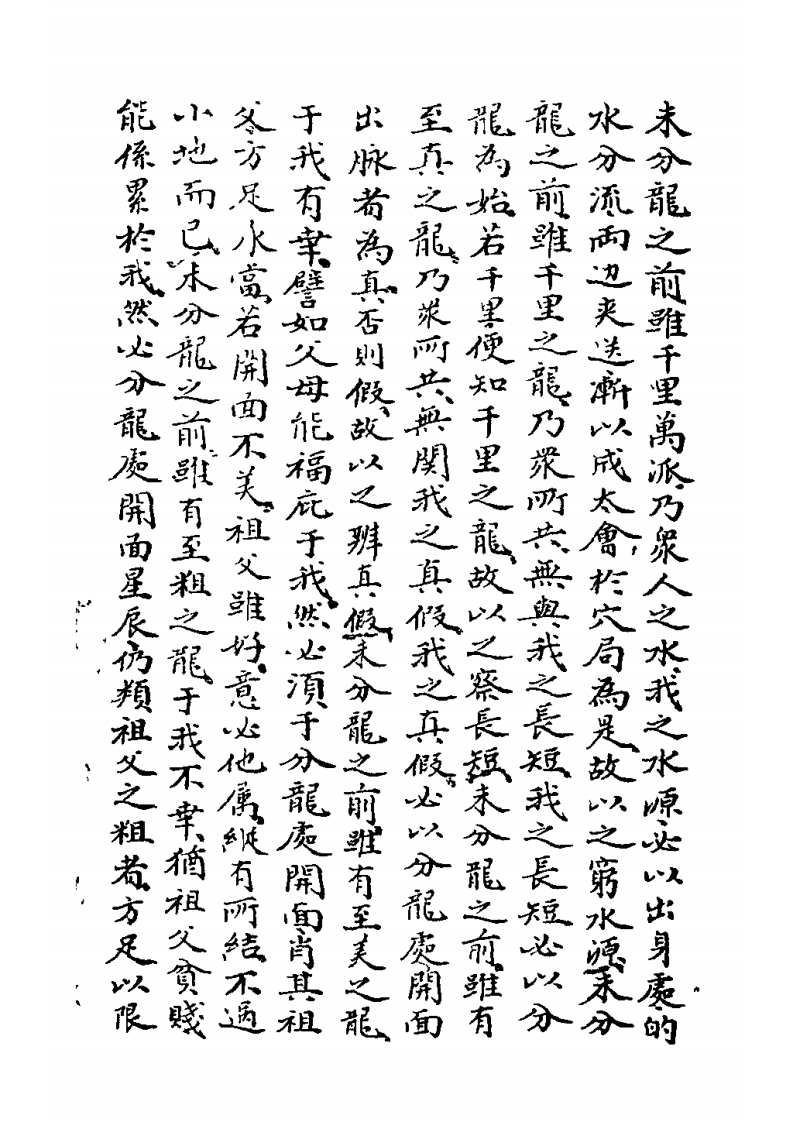 未分龍之前雖千里萬派乃衆人之水我之水源必以出身處的
水分流両边夾送漸以成太會於穴局為是故以之窮水源未分
龍之前雖千里之龍乃衆所共無與我之長短我之長短必以分
龍為始若千里便知千里之龍故以之察長短未分龍之前雖有
至真之龍乃衆所共無関我之真假我之真假必以分龍處開面
出脉者為真否則假故以之辨真假未分龍之前雖有至美之龍
于我有幸譬如父母能福庇于我然必須于分龍處開面肖其祖
父方足永當若開面不美祖父雖好意必他属縱有所結不過
小地而已未分龍之前雖有至粗之龍于我不幸猶祖父貧賤
能係累於我然必分龍處開面星辰仍類祖父之粗者方足以限